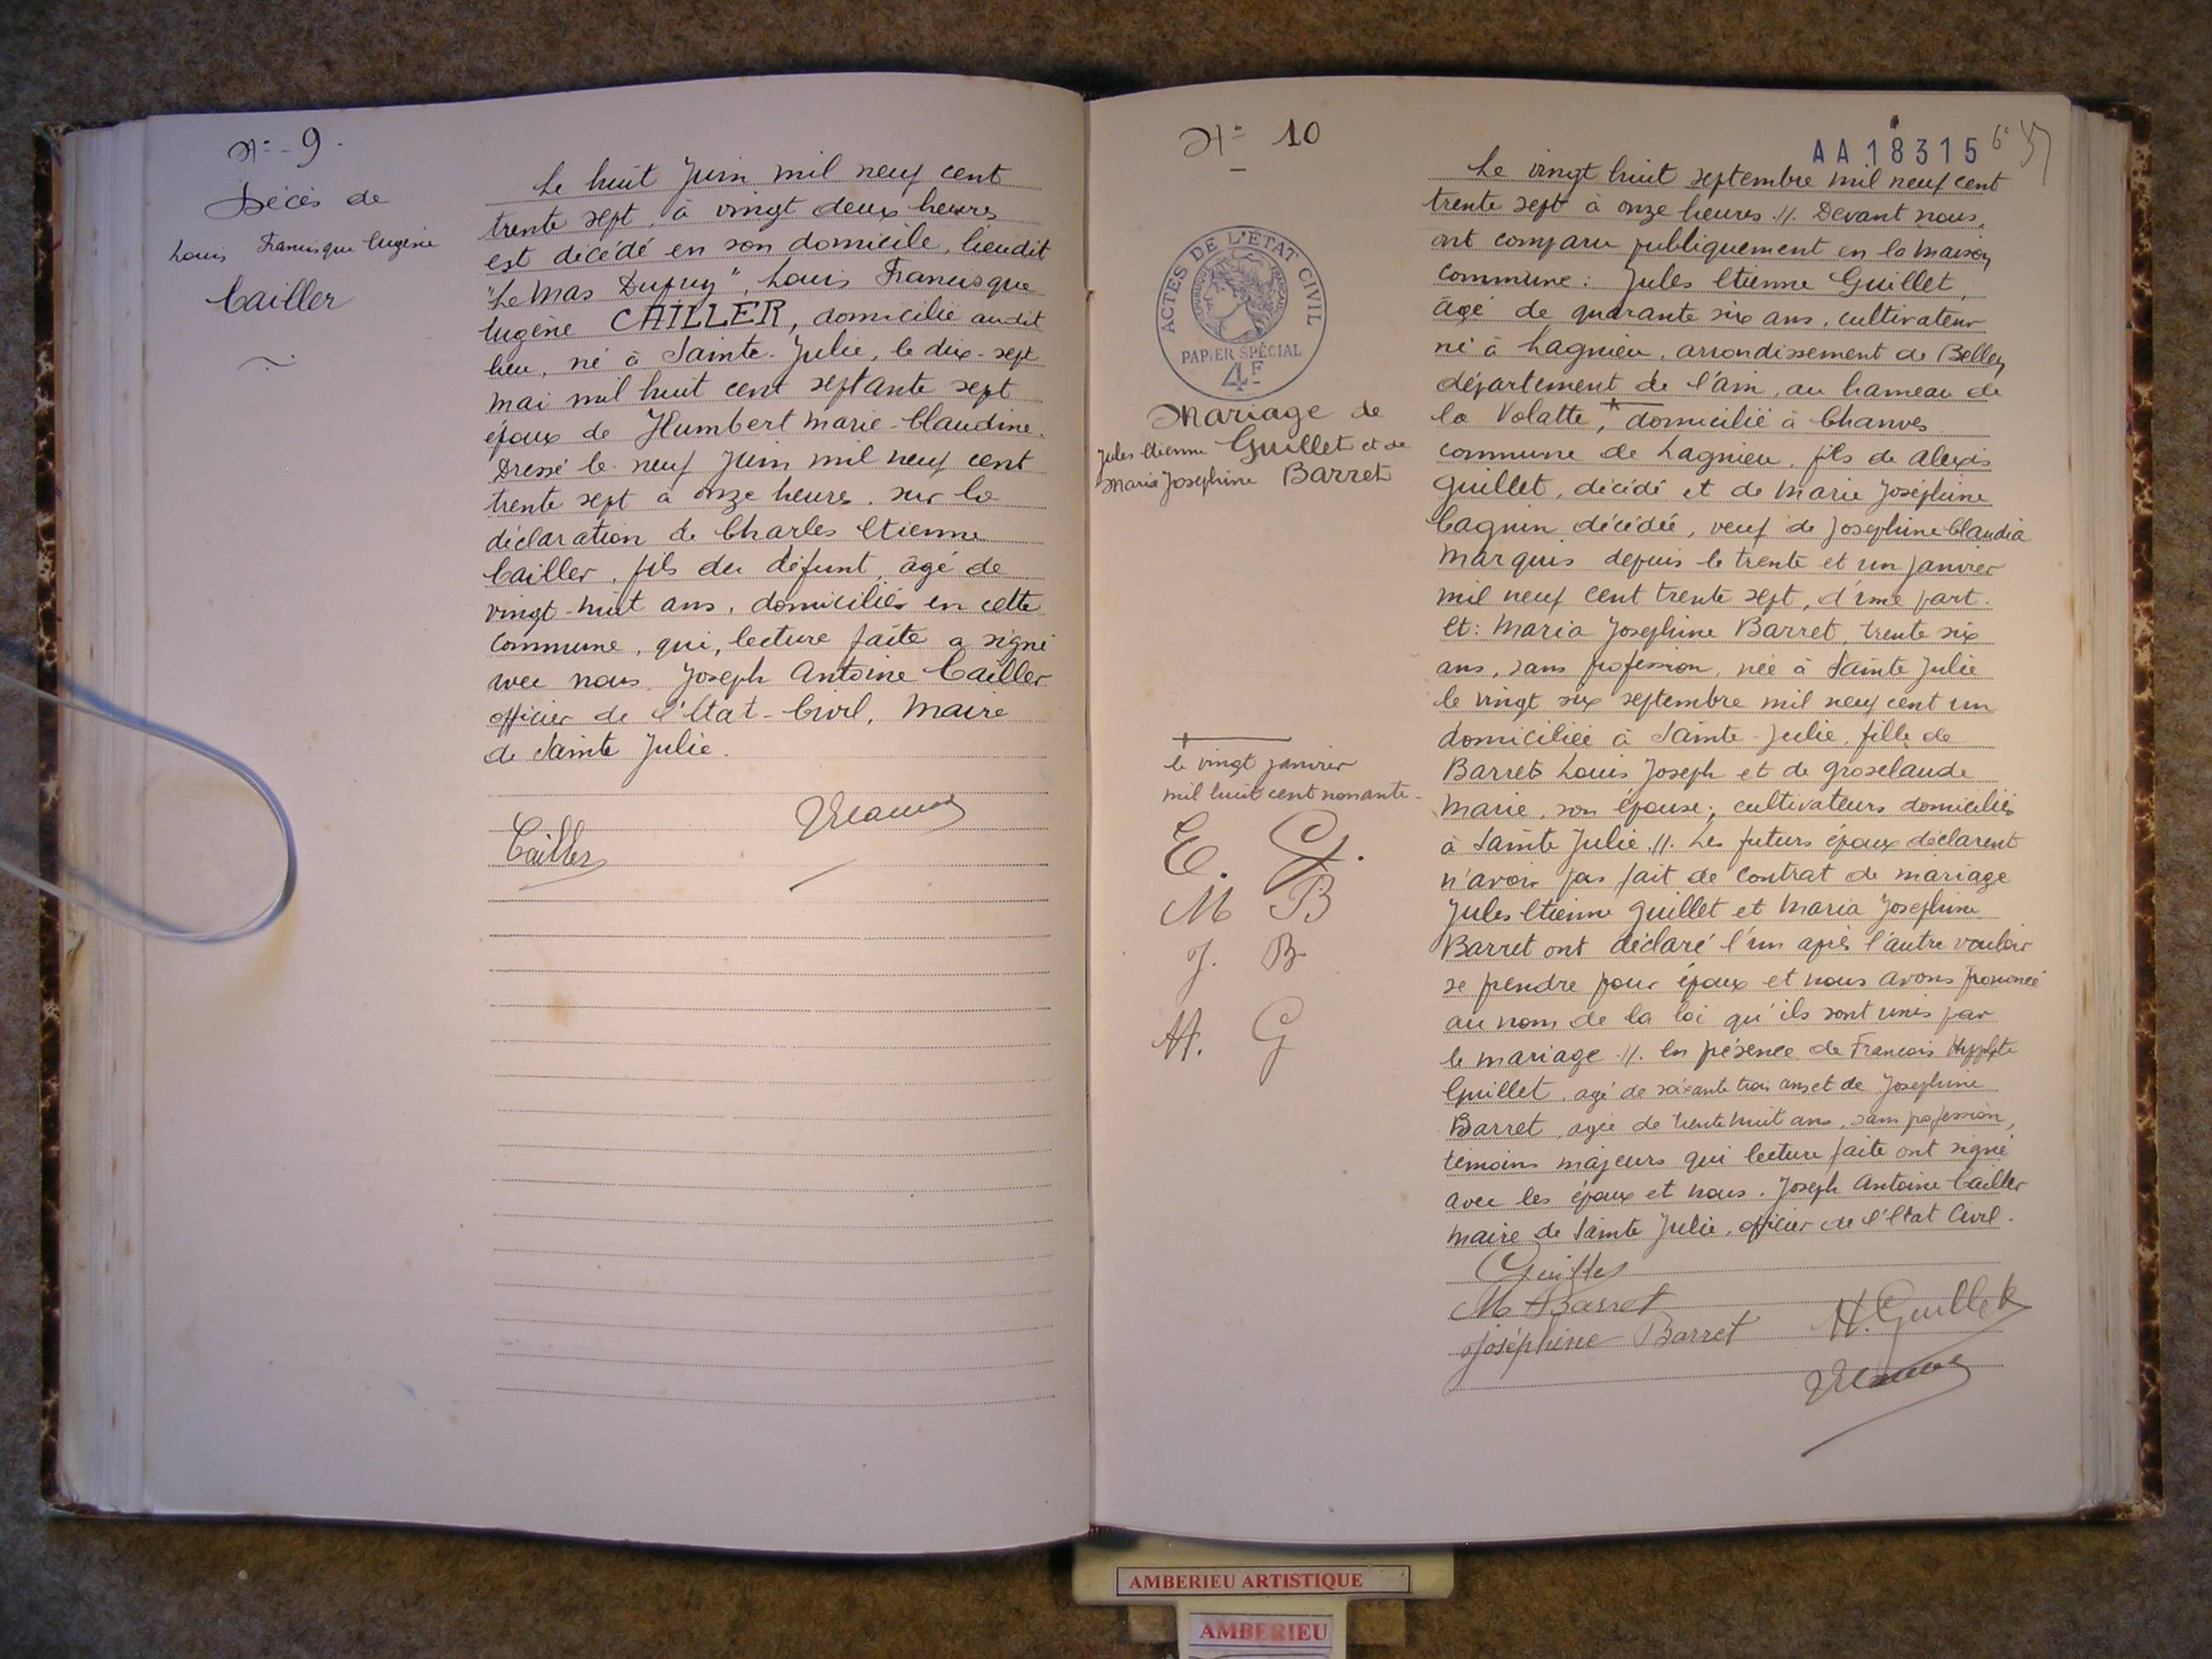 N° - 9 -
Décès de
Louis Francisque Eugène
Cailler
Le huit Juin mil neuf cent
trente sept, à vingt deux heures
est décédé en son domicile, lieudit
"Le Mas Dupuy", Louis Francisque
Eugène CAILLER, domicilié audit
lieu, né à Sainte-Julie, le dix-sept
mai mil huit cent septante sept
époux de Humbert Marie-Claudine.
Dressé le neuf Juin mil neuf cent
trente sept à onze heures, sur la
déclaration de Charles Etienne
Cailler, fils du défunt, âgé de
vingt-huit ans, domiciliés en cette
commune, qui, lecture faite a signé
avec nous, Joseph Antoine Cailler
officier de l'Etat-Civil, Maire
de Sainte Julie.
Cailler
N° 10
ACTES DE L'ÉTAT CIVIL
PAPIER SPÉCIAL
4F
Mariage de
Jules Etienne Guillet et de
Maria Josephine Barret
le vingt janvier
mil huit cent nonante-
E. G.
M B
J. B
H. G
AA18315
Le vingt huit septembre mil neuf cent
trente sept à onze heures .//. Devant nous,
ont comparu publiquement en la maison
commune : Jules Etienne Guillet,
âgé de quarante six ans, cultivateur
né à Lagnieu, arrondissement de Belley
département de l'ain, au hameau de
la Volatte, domicilié à Chanves
commune de Lagnieu, fils de Alexis
Guillet, décédé et de Marie Joséphine
Cagnin décédée, veuf de Josephine Claudia
Marquis depuis le trente et un janvier
mil neuf cent trente sept, d'une part.
Et : Maria Josephine Barret, trente six
ans, sans profession, née à Sainte Julie
le vingt six septembre mil neuf cent un
domiciliée à Sainte-Julie, fille de
Barret Louis Joseph et de Groselande
Marie, son épouse, cultivateurs domiciliés
à Sainte Julie .//. Les futurs époux déclarent
n'avoir pas fait de contrat de mariage
Jules Etienne Guillet et Maria Josephine
Barret ont déclaré l'un après l'autre vouloir
se prendre pour époux et nous avons prononcé
au nom de la loi qu'ils sont unis par
le mariage .//. En présence de Francois Hyppolyte
Guillet, agé de soixante trois ans et de Josephine
Barret, agée de trente huit ans, sans profession,
témoins majeurs qui lecture faite ont signé
avec les époux et nous. Joseph Antoine Cailler
maire de Sainte Julie, officier de l'Etat Civil.
Guillet
M Barret
Joséphine Barret H. Guillet
AMBERIEU ARTISTIQUE
AMBERIEU